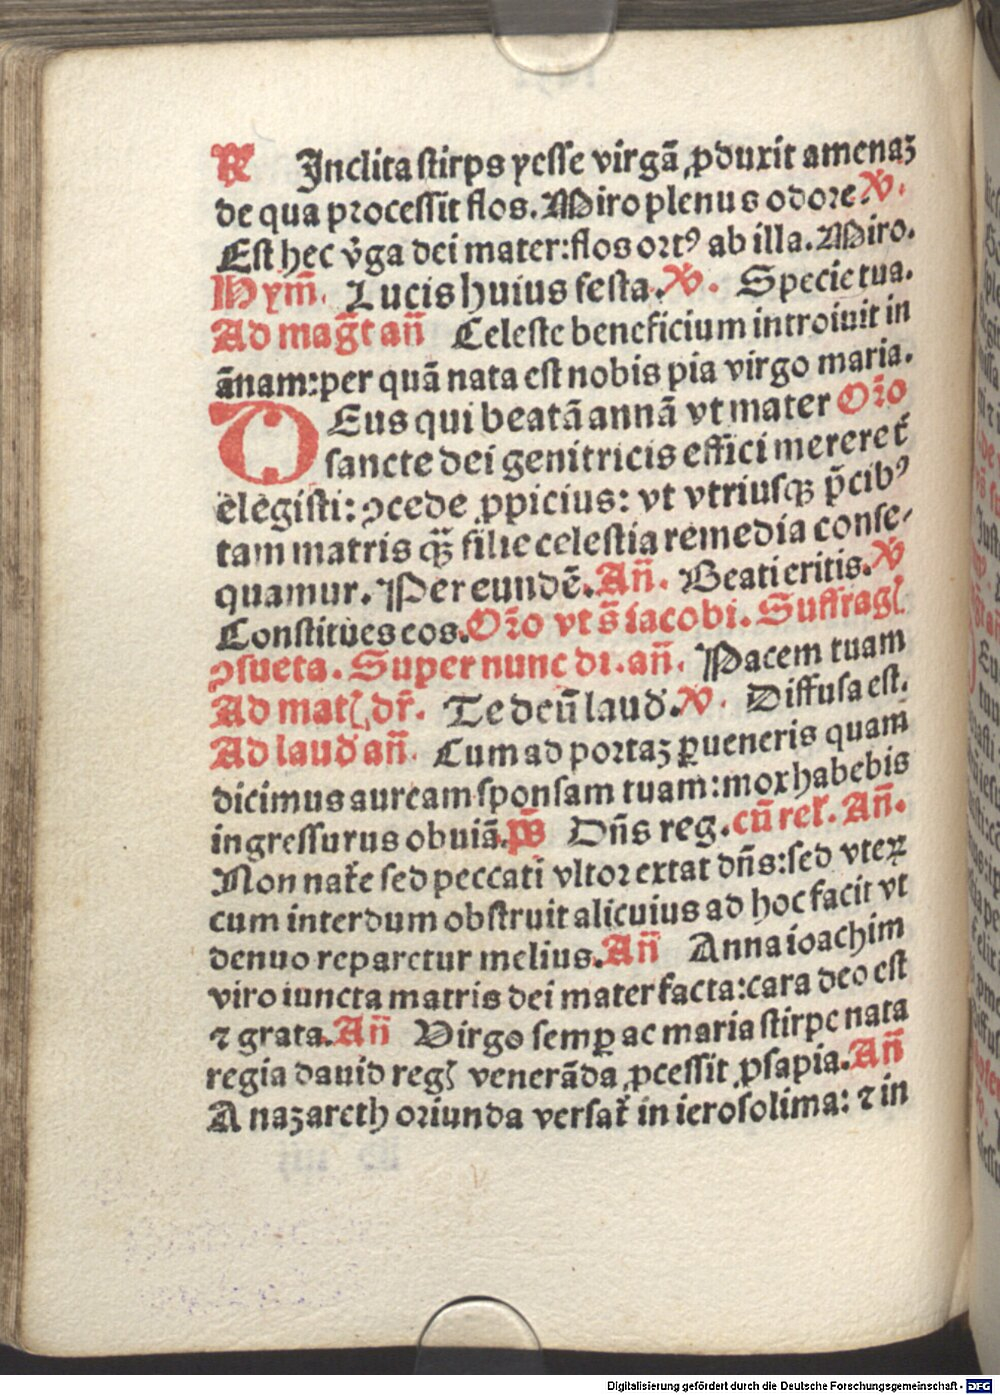 ℟ Inclita stirps yesse virgā ꝓduxit amenaꝫ
de qua processit flos. Miro plenus odore. ℣.
Est hec v̓ga dei mater: flos ortꝰ ab illa. Miro.
Hym̄. Lucis huius festa. ℣. Specie tua.
Ad mag̃t an̄ Celeste beneficium introiuit in
ānam: per quā nata est nobis pia virgo maria.
DEus qui beatā annā vt mater Or̃o
sancte dei genitricis effici mereret᷑
elegisti: ꝯcede ꝓpicius: vt vtriusqꝫ p̄cibꝰ
tam matris qꝫ̄ filie celestia remedia conse-
quamur. Per eundē. An̄. Beati eritis. ℣
Constitues eos. Or̃o vt s̄ iacobi. Suffrag̃
ꝯsueta. Super nunc di. an̄. Pacem tuam
Ad mat̃ dr̄. Te deū laud̓. ℣. Diffusa est.
Ad laud̓ an̄. Cum ad portaꝫ ꝑueneris quam
dicimus auream sponsam tuam: mox habebis
ingressurus obuiā. p̄s Dn̄s reg. cū rel̓. An̄.
Non nat᷑e sed peccati vltor extat dn̄s: sed vteꝝ
cum interdum obstruit alicuius ad hoc facit vt
denuo reparetur melius. An̄ Anna ioachim
viro iuncta matris dei mater facta: cara deo est
⁊ grata. An̄ Virgo semꝑ ac maria stirpe nata
regia dauid regꝭ venerāda ꝓcessit ꝓsapia. An̄
A nazareth oriunda versat᷑ in ierosolima: ⁊ in
Digitalisierung gefördert durch die Deutsche Forschungsgemeinschaft - DFG